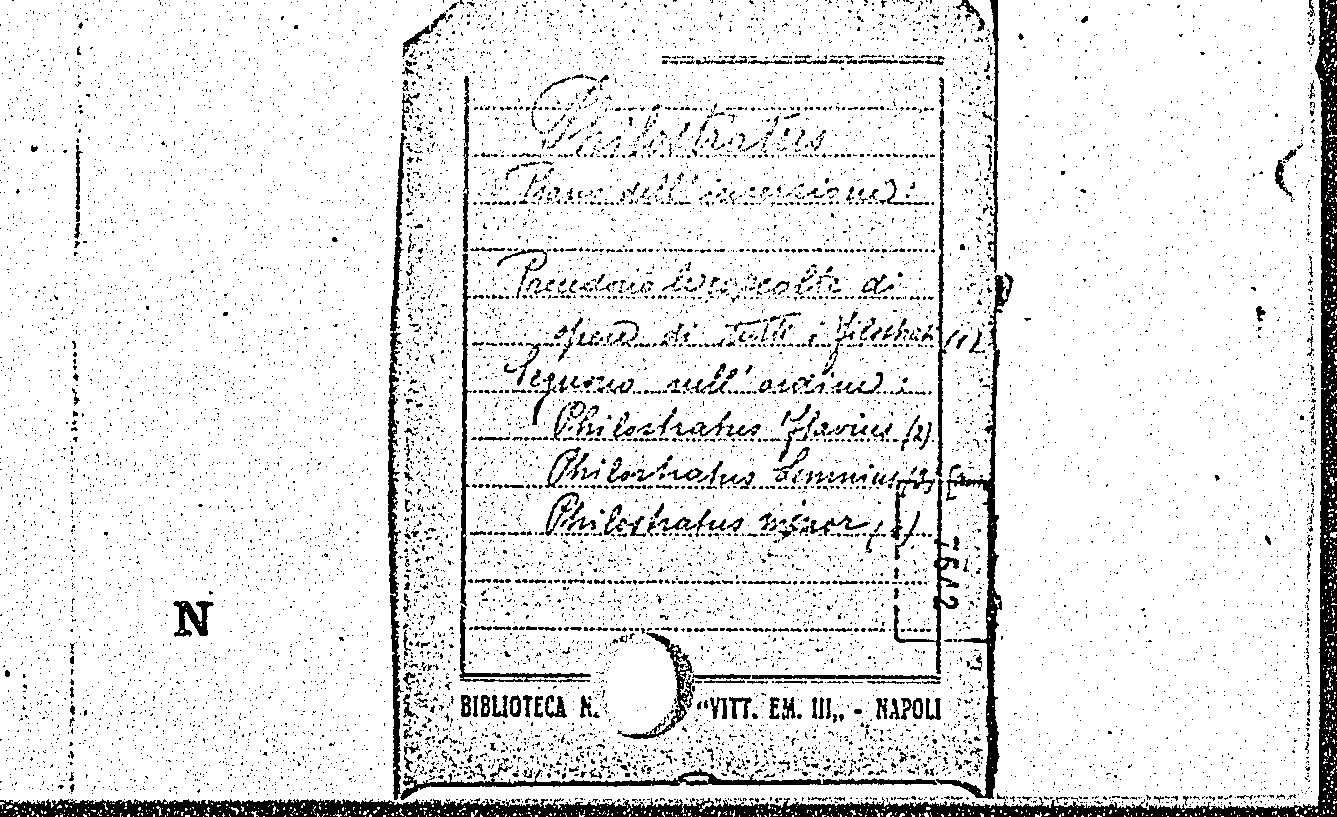 Philostratus
Piano dell'inserzione:
Precedono le raccolte di
opere di tutti i filostrati (1)
Seguono nell'ordine:
Philostratus Flavius (2)
Philostratus Lemnius (3)
Philostratus minor
7612
N
BIBLIOTECA N. "VITT. EM. III„ - NAPOLI